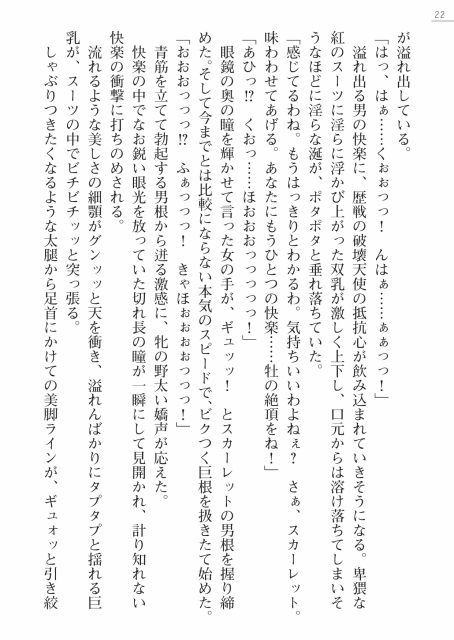 22
が溢れ出している。
「はっ、はぁ……くぉぉっっ！　んはぁ……ぁぁっっ！」
溢れ出る男の快楽に、歴戦の破壊天使の抵抗心が飲み込まれていきそうになる。卑猥な
紅のスーツに淫らに浮かび上がった双乳が激しく上下し、口元からは溶け落ちてしまいそ
うなほどに淫らな涎が、ポタポタと垂れ落ちていた。
「感じてるわね。もうはっきりとわかるわ。気持ちいいわよねぇ？　さぁ、スカーレット。
味わわせてあげる。あなたにもうひとつの快楽……牡の絶頂をね！」
「あひっ!?　くおっ……ほおおおっっっっっ！」
眼鏡の奥の瞳を輝かせて言った女の手が、ギュッッ！　とスカーレットの男根を握り締
めた。そして今までとは比較にならない本気のスピードで、ビクつく巨根を扱きたて始めた。
「おおおっっっ!?　ふぁっっっ！　きゃほぉぉぉぉっっっ！」
青筋を立てて勃起する男根から迸る激感に、牝の野太い嬌声が応えた。
快楽の中でなお鋭い眼光を放っていた切れ長の瞳が一瞬にして見開かれ、計り知れない
快楽の衝撃に打ちのめされる。
流れるような美しさの細顎がグンッッと天を衝き、溢れんばかりにタプタプと揺れる巨
乳が、スーツの中でビチビチッッと突っ張る。
しゃぶりつきたくなるような太腿から足首にかけての美脚ラインが、ギュォッと引き絞